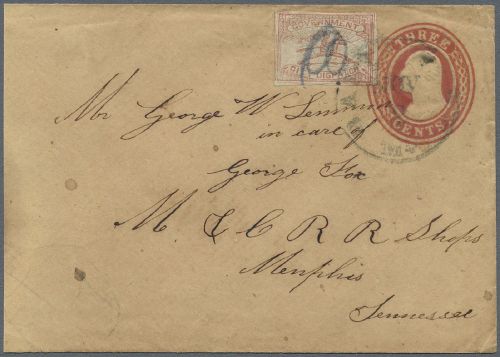 GOVERNMENT
CITY DISPATCH
THREE
CENTS
Mr George W Lemmon
in care of
George Fox
M & C R R Shops
Memphis
Tennessee